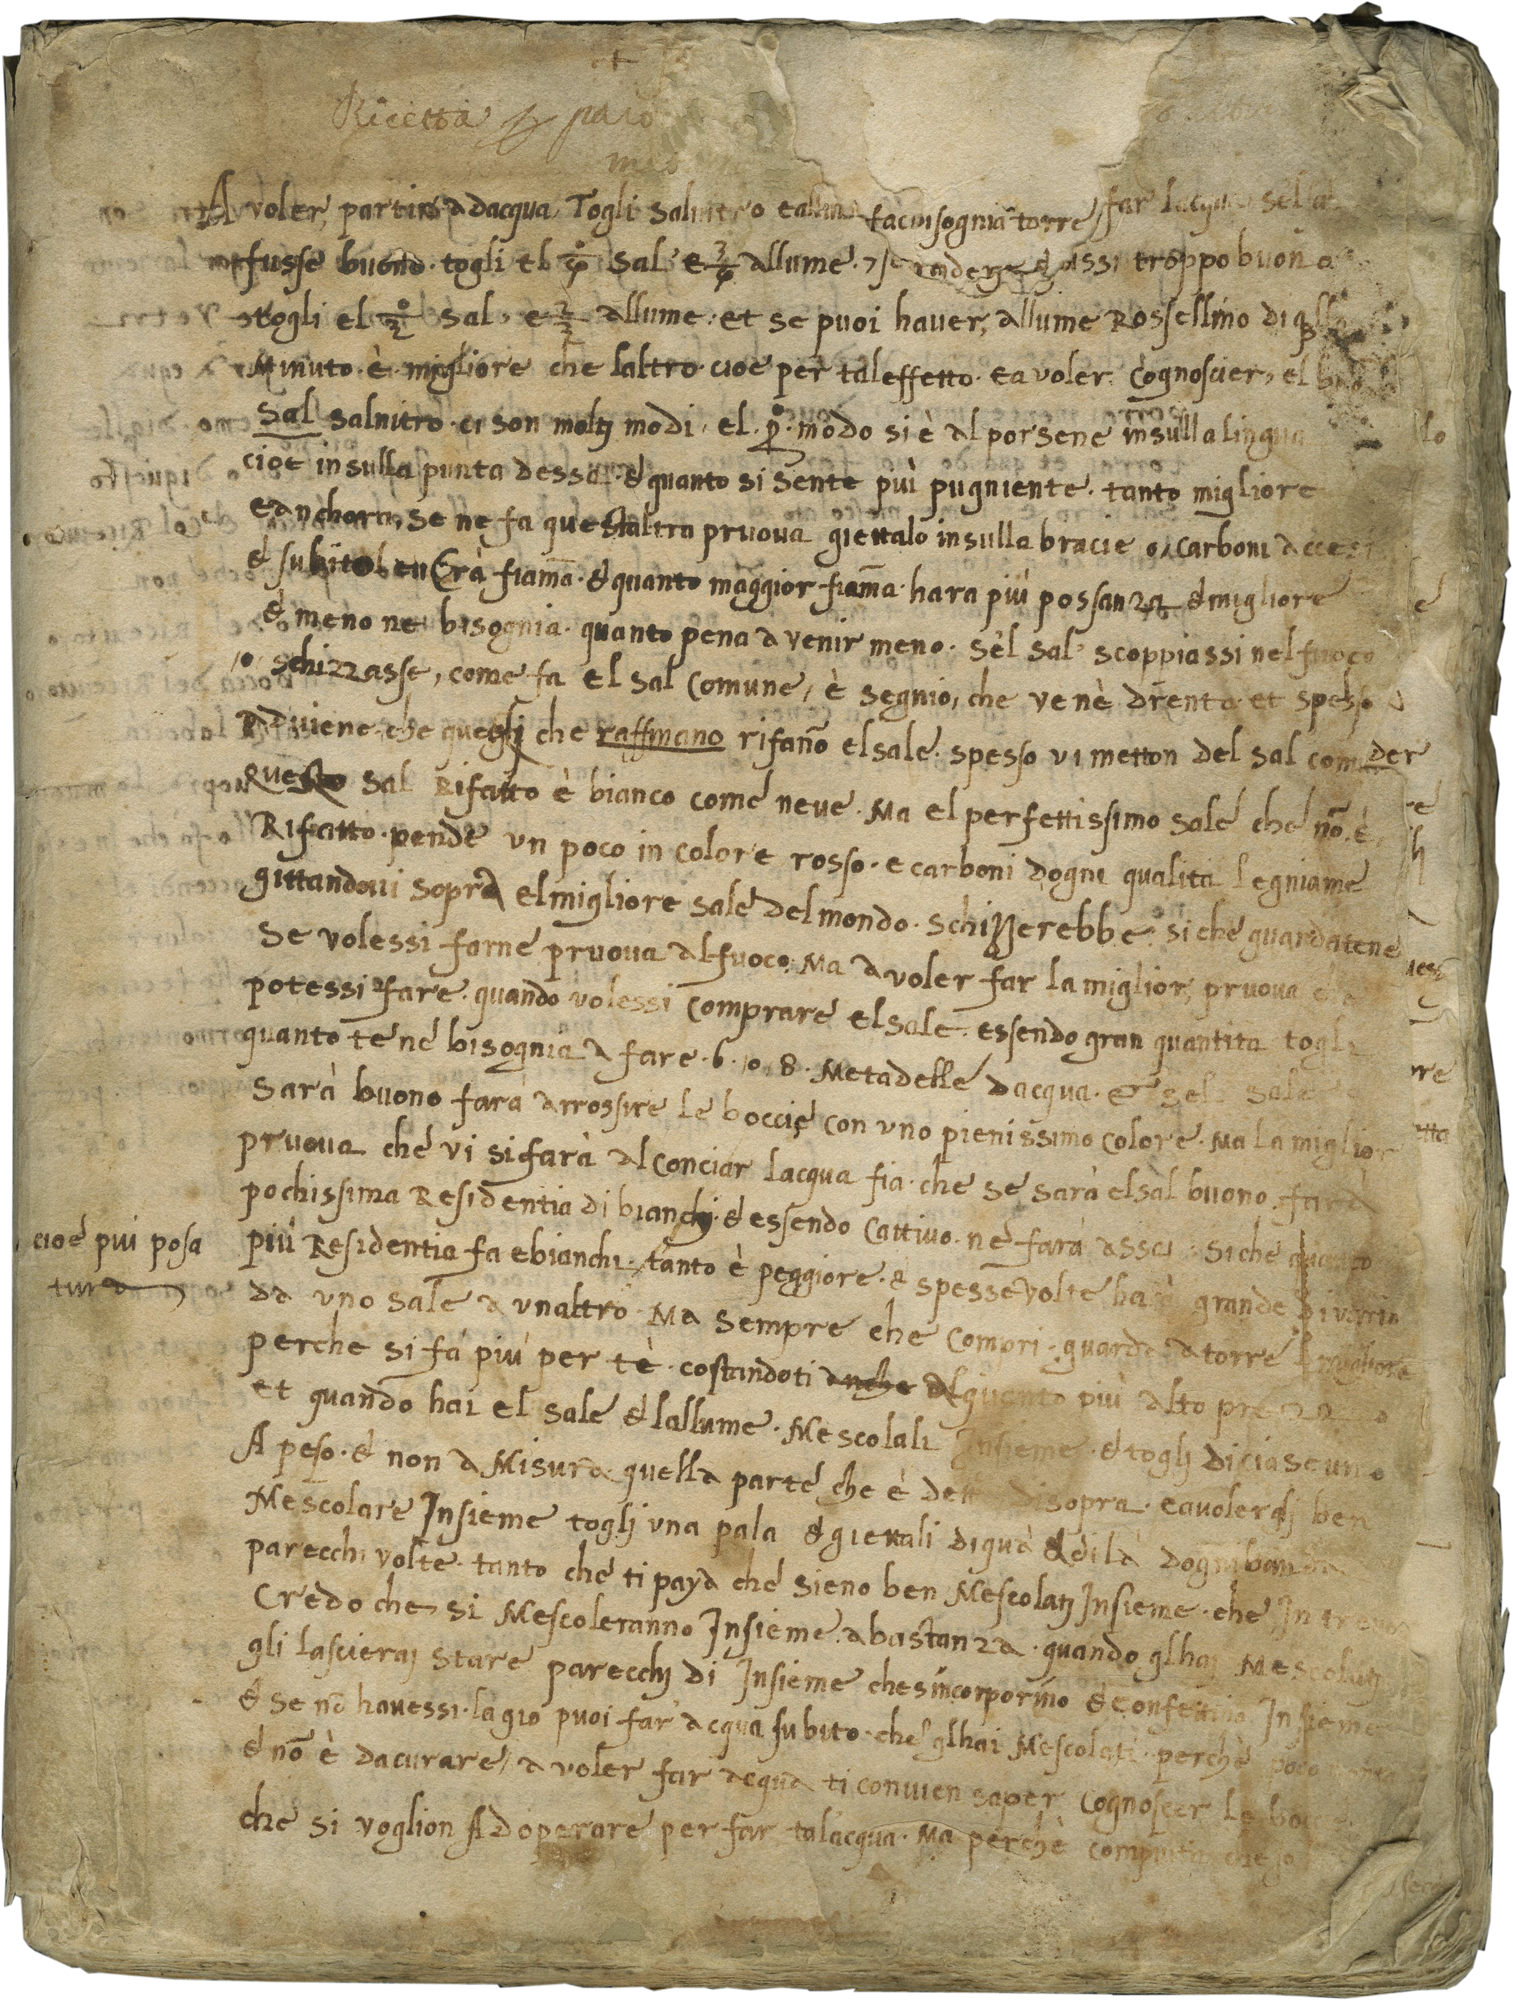 Ricetta
A voler partir adacqua Togli Salnitro faciñsognia torre far lacqua sel
fusse buono. togli el sal e allume. troppo buono
togli el sal. e allume. et se puoi haver, allume Rossellino di
Minuto. è. migliore che laltro. cioe per tal effetto. e a voler cognoscier, el
Sal salnitro. ci son moltj modi. el. pº. modo si è al porsene insulla lingua
cioe insulla punta dessa. & quanto si sente piu pugniente. tanto migliore
e anchora, se ne fa questaltra pruova giettalo insulla bracie o, carboni accesi
& subito fiam̃a. & quanto maggior fiam̃a. hara più possanza & migliore
& meno ne bisognia. quanto pena a venir meno. sèl sal scoppiassi nel fuoco
, o schizzasse, come fa el sal comune, è segnio, che venè drento. et spesso
Adviene. che queglj che raffinano rifan̄o el sale. spesso vi metton del sal com
der
Questo sal Rifatto è bianco come neve. Ma el perfettissimo sale che nō. è
Rifatto. pende un poco in colore rosso. e carboni dogni qualita legniame
gittandovi sopra el migliore sale del mondo. schizzerebbe. siche guardatene
Se volessi farne pruova al fuoco. Ma a voler far la miglior, pruova
potessi fare. quando volessi comprare el sale. essendo gran quantita togli
quanto te ne bisognia a fare. 6. o. 8. Metadelle dacqua. & sel sale
Sarà buono farà arrossire le boccie con uno pienissimo colore. Ma la miglior
pruova che vi si farà al conciar lacqua fia. che se sarà el sal buono. farà
pochissima Residentia di bianchj. & essendo cattivo. ne farà assai. siche quanto
cioè piu posa
tura
più Residentia fa ebianchi. tanto è peggiore. & spesse volte harà grande divario
da uno sale a unaltro. Ma sempre che compri. guarda a torre l migliore
perche si fa più per tè. costandoti anche alquanto più alto prezzo
et quando hai el sale & lallume. Mescolali Insieme. & toglj di ciascuno
A peso. & non a Misura. quella parte che è detta disopra. e a volerglj ben
Mescolare Insieme toglj una pala & giettali di quà & di là dogni banda
parecchi volte. tanto che ti paya che sieno ben Mescolatj Insieme. che In tre
Credo che, si Mescoleranno Insieme. abastanza. quando glhaj Mescolatj
gli lascieraj stare parecchj di Insieme che sincorporino & confettino Insieme
& se nō havessi. lagio puoi far acqua subito. che glhai Mescolati. perchè poco
& nō è dacurare, a voler far acqua ti convien saper cognoscer le
che si voglion Adoperare per far talacqua. Ma perchè